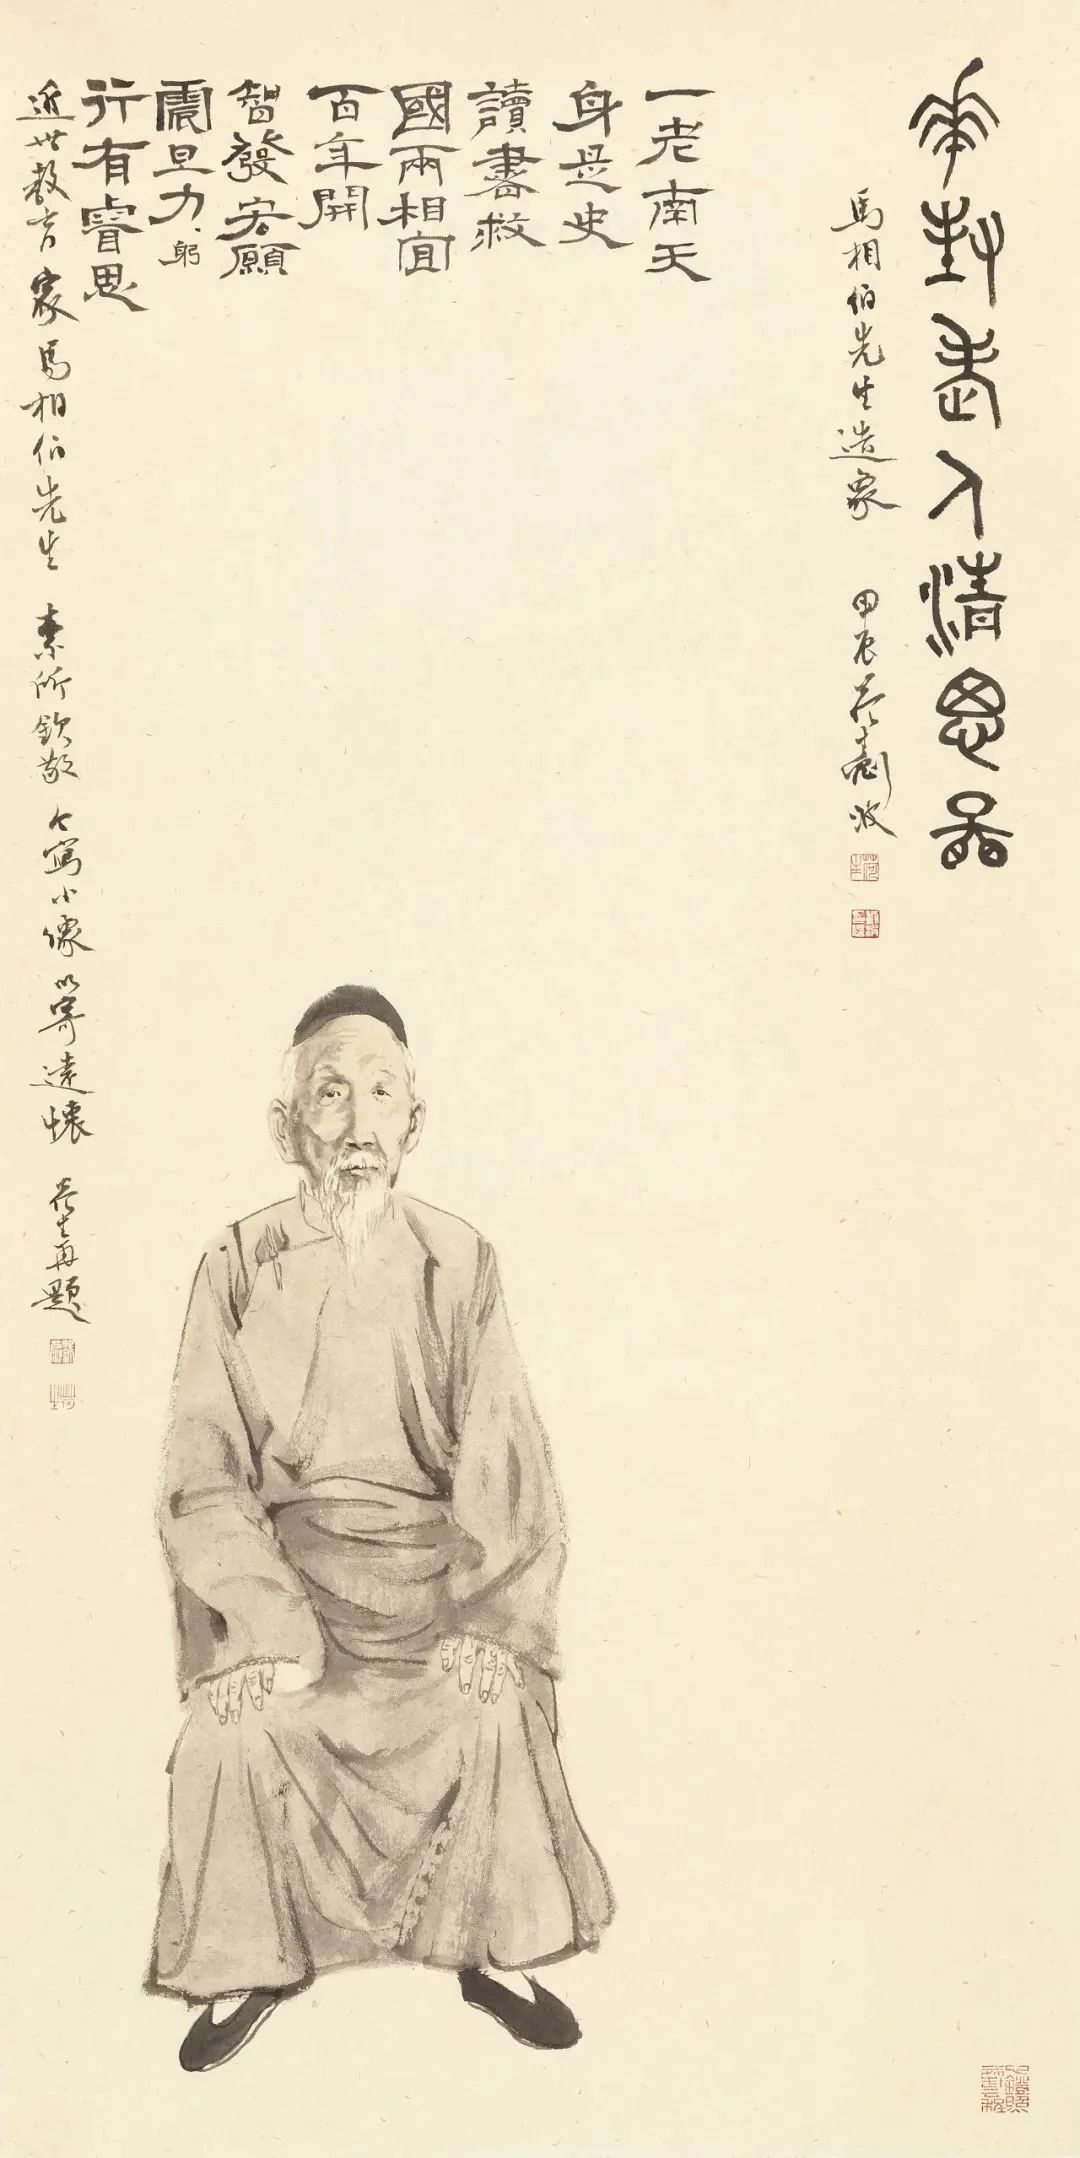 華封老人清思圖
馬相伯先生造象 甲辰荷生劉波
一老南天
身是史
讀書救
國兩相宜
百年開
智發宏願
震旦力、躬
行有睿思
近世教育家馬相伯先生 素所欽敬 今寫小像 以寄遠懷 荷生再題